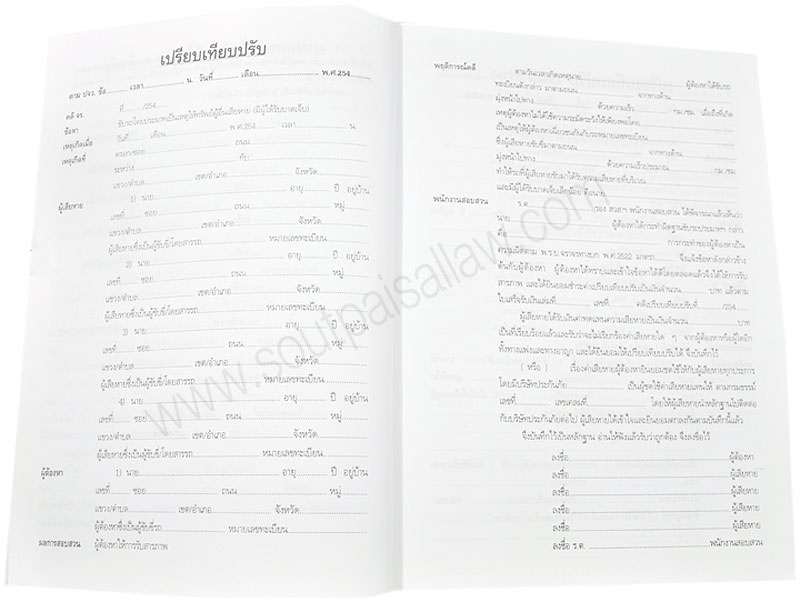 เปรียบเทียบปรับ
ตาม ปจว. ข้อ........ เวลา................ น. วันที่........... เดือน........................ พ.ศ.254.......
คดี จร. ที่ ......../254......
ข้อหา ขับรถโดยประมาทเป็นเหตุให้ทรัพย์ผู้อื่นเสียหาย (มีผู้ได้รับบาดเจ็บ)
เหตุเกิดเมื่อ วันที่......... เดือน........................ พ.ศ.254....... เวลา.................... น.
เหตุเกิดที่ ตรอก/ซอย................................ ถนน................................
ระหว่าง................................ กับ................................
แขวง/ตำบล........................ เขต/อำเภอ........................ จังหวัด................
ผู้เสียหาย 1) นาย........................................ อายุ........ ปี อยู่บ้าน
เลขที่........ ซอย........................ ถนน........................ หมู่........
แขวง/ตำบล........................ เขต/อำเภอ........................ จังหวัด................
ผู้เสียหายซึ่งเป็นผู้ขับขี่/โดยสารรถ................ หมายเลขทะเบียน................
2) นาย........................................ อายุ........ ปี อยู่บ้าน
เลขที่........ ซอย........................ ถนน........................ หมู่........
แขวง/ตำบล........................ เขต/อำเภอ........................ จังหวัด................
ผู้เสียหายซึ่งเป็นผู้ขับขี่/โดยสารรถ................ หมายเลขทะเบียน................
3) นาย........................................ อายุ........ ปี อยู่บ้าน
เลขที่........ ซอย........................ ถนน........................ หมู่........
แขวง/ตำบล........................ เขต/อำเภอ........................ จังหวัด................
ผู้เสียหายซึ่งเป็นผู้ขับขี่/โดยสารรถ................ หมายเลขทะเบียน................
4) นาย........................................ อายุ........ ปี อยู่บ้าน
เลขที่........ ซอย........................ ถนน........................ หมู่........
แขวง/ตำบล........................ เขต/อำเภอ........................ จังหวัด................
ผู้เสียหายซึ่งเป็นผู้ขับขี่/โดยสารรถ................ หมายเลขทะเบียน................
ผู้ต้องหา 1) นาย........................................ อายุ........ ปี อยู่บ้าน
เลขที่........ ซอย........................ ถนน........................ หมู่........
แขวง/ตำบล........................ เขต/อำเภอ........................ จังหวัด................
ผู้ต้องหาซึ่งเป็นผู้ขับขี่รถ........................ หมายเลขทะเบียน................
ผลการสอบสวน ผู้ต้องหาให้การรับสารภาพ
พฤติการณ์คดี ตามวันเวลาเกิดเหตุนาย................................ ผู้ต้องหาได้ขับรถ
ทะเบียนดังกล่าว มาตามถนน................................ จากทางด้าน................
มุ่งหน้าไปทาง................ ด้วยความเร็ว................ กม./ชม. เมื่อถึงที่เกิด
เหตุผู้ต้องหาไม่ได้ใช้ความระมัดระวังให้เพียงพอโดย................
เป็นเหตุให้ผู้ต้องหาเฉี่ยวชนกันกับรถหมายเลขทะเบียน................
ซึ่งผู้เสียหายขับขี่มาตามถนน................ จากทางด้าน................
มุ่งหน้าไปทาง................ ด้วยความเร็วประมาณ................ กม./ชม.
ทำให้รถที่ผู้เสียหายขับมาได้รับความเสียหายที่บริเวณ................
และมีผู้ได้รับบาดเจ็บเสียด้วย คือนาย................
พนักงานสอบสวน ร.ต................................รอง สวส.ฯ พนักงานสอบสวน ได้พิจารณาแล้วเห็นว่า
นาย................................ ผู้ต้องหาได้กระทำผิดฐานขับรถประมาทฯ กล่าว
คือ................................ การกระทำของผู้ต้องหาเป็น
ความผิดตาม พ.ร.บ.จราจรทางบก พ.ศ.2522 มาตรา........ จึงแจ้งข้อหาดังกล่าวข้าง
ต้นกับผู้ต้องหา ผู้ต้องหาได้ทราบและเข้าใจข้อหาได้ดีโดยตลอดแล้วจึงได้ให้การรับ
สารภาพ และได้ยินยอมชำระค่าเปรียบเทียบปรับเป็นเงินจำนวน................บาท แล้วตาม
ใบเสร็จรับเงินเล่มที่................ เลขที่ ........ คดีเปรียบเทียบปรับที่ ......../254......
ผู้เสียหายได้รับเงินค่าทดแทนความเสียหายเป็นเงินจำนวน................บาท
เป็นที่เรียบร้อยแล้วและรับว่าจะไม่เรียกร้องค่าเสียหายใด ๆ จากผู้ต้องหาหรือผู้ใดอีก
ทั้งทางแพ่งและทางอาญา และได้ยินยอมให้เปรียบเทียบปรับได้ จึงบันทึกไว้
( หรือ ) เรื่องค่าเสียหายผู้ต้องหายินยอมชดใช้ให้กับผู้เสียหายทุกประการ
โดยมีบริษัทประกันภัย................ เป็นผู้ชดใช้ค่าเสียหายแทนให้ ตามกรมธรรม์
เลขที่................เลขเคลมที่................ โดยให้ผู้เสียหายนำหลักฐานไปติดต่อ
กับบริษัทประกันภัยต่อไป ผู้เสียหายได้เข้าใจและยินยอมตกลงกันตามบันทึกนี้แล้ว
จึงบันทึกไว้เป็นหลักฐาน อ่านให้ฟังแล้วรับว่าถูกต้อง จึงลงชื่อไว้
ลงชื่อ................................ผู้ต้องหา
ลงชื่อ................................ผู้เสียหาย
ลงชื่อ................................ผู้เสียหาย
ลงชื่อ................................ผู้เสียหาย
ลงชื่อ................................ผู้เสียหาย
ลงชื่อ ร.ต. ................................พนักงานสอบสวน
www.soutpaisallaw.com